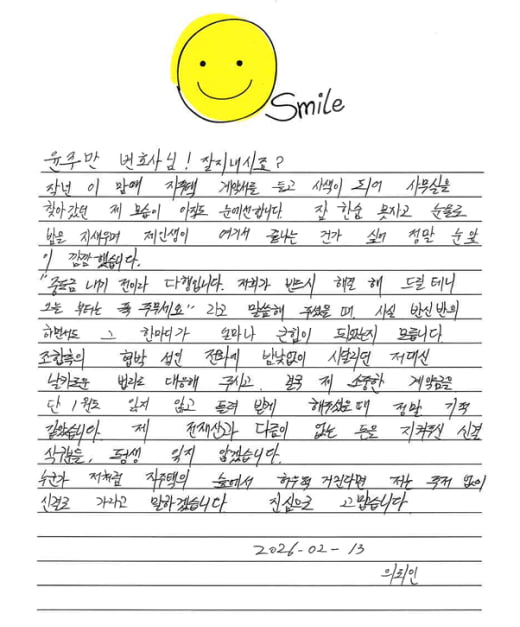 Smile
윤주만 변호사님! 잘지내시죠?
작년 이 맘때 지주택 계약서를 들고 사색이 되어 사무실을
찾아갔던 제 모습이 아직도 눈에선합니다. 잠 한숨 못자고 눈물로
밤을 지새우며 제인생이 여기서 끝나는 건가 싶어 정말 눈 앞
이 깜깜했습니다.
"중도금 내기 전이라 다행입니다. 저희가 반드시 해결 해 드릴테니
오늘 부터는 푹 주무세요" 라고 말씀해 주셨을 때, 사실 반신반의
하면서도 그 한마디가 얼마나 큰힘이 되었는지 모릅니다.
조합측의 협박 섞인 전화에 밤낮없이 시달리던 저대신
날카로운 법리로 대응해 주시고, 결국 제 소중한 계약금을
단 1원도 잃지 않고 돌려 받게 해주셨을때 정말 기적
같았습니다. 제 전재산과 다름이 없는 돈을 지켜주신 신결
식구들, 평생 잊지 않겠습니다.
누군가 저처럼 지주택의 늪에서 허우적 거린다면 저는 주저 없이
신결로 가라고 말하겠습니다. 진심으로 고맙습니다.
2026-02-13
의뢰인